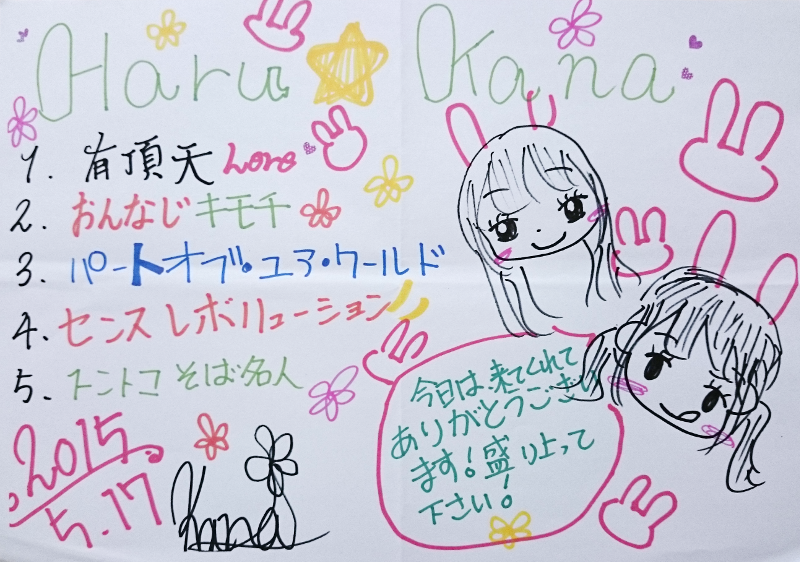 Haru Kana
1. 有頂天Love
2. おんなじキモチ
3. パートオブ・ユア・ワールド
4. センスレボリューション
5. トントコそば名人
2015
5.17
Kana
今日は、来てくれて
ありがとうござい
ます!盛り上って
下さい!